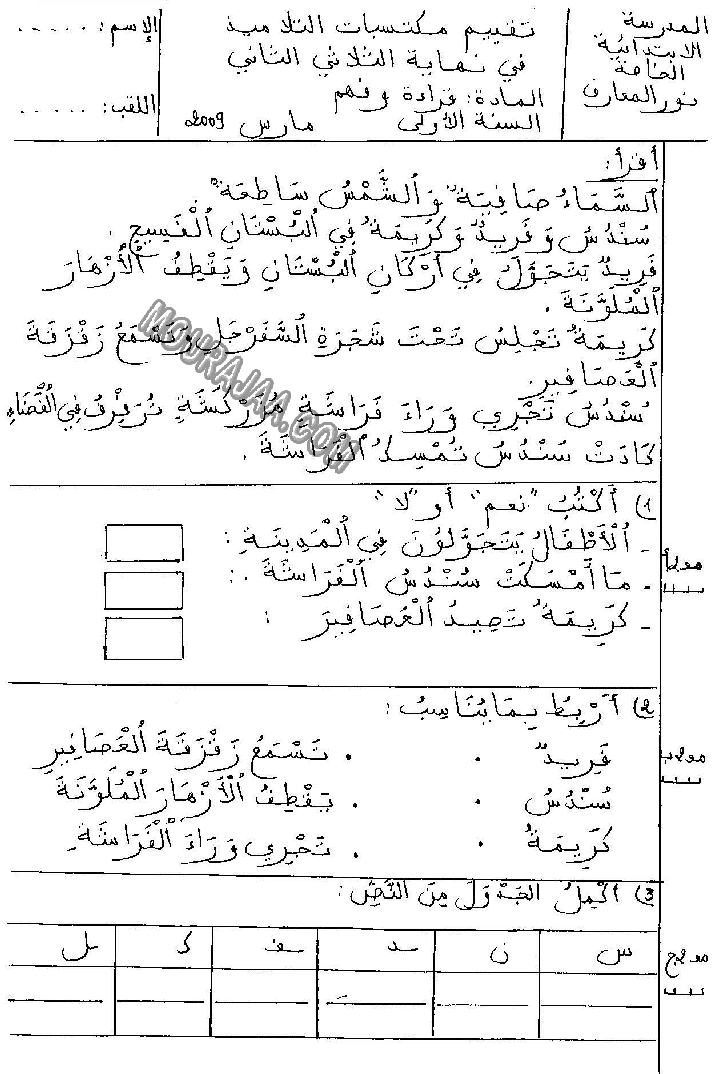 المدرسة
الابتدائية
الخاصة
نور المعارف
تقييم مكتسبات التلاميذ
في نهاية الثلاثي الثاني
المادة: قراءة وفهم
السنة الأولى مارس 2009
الإسم: .....
اللقب: .....
أقرأ:
اَلسَّمَاءُ صَافِيَةٌ وَالشَّمْسُ سَاطِعَةٌ
سُنْدُسُ وَفَرِيدٌ وَكَرِيمَةٌ فِي الْبُسْتَانِ الْفَسِيحِ.
فَرِيدٌ يَتَجَوَّلُ فِي أَرْكَانِ الْبُسْتَانِ وَيَقْطِفُ الْأَزْهَارَ
الْمُلَوَّنَةَ.
كَرِيمَةٌ تَجْلِسُ تَحْتَ شَجَرَةِ السَّفَرْجَلِ وَتَسْمَعُ زَقْزَقَةَ
الْعَصَافِيرِ.
سُنْدُسُ تَجْرِي وَرَاءَ فَرَاشَةٍ مُزَرْكَشَةٍ تُرَفْرِفُ فِي الْفَضَاءِ
كَادَتْ سُنْدُسُ تُمْسِكُ الْفَرَاشَةَ.
MOURAJAA.COM
1) أَكْتُبُ "نعم" أو "لا"
- اَلْأَطْفَالُ يَتَجَوَّلُونَ فِي الْمَدِينَةِ:
- مَا أَمْسَكَتْ سُنْدُسُ الْفَرَاشَةَ.:
- كَرِيمَةٌ تَصِيدُ الْعَصَافِيرَ:
مع1أ
2) أَرْبِطُ بِمَا يُنَاسِبُ:
فَرِيدٌ . . تَسْمَعُ زَقْزَقَةَ الْعَصَافِيرِ
سُنْدُسُ . . يَقْطِفُ الْأَزْهَارَ الْمُلَوَّنَةَ
كَرِيمَةٌ . . تَجْرِي وَرَاءَ الْفَرَاشَةِ
3) أُكْمِلُ الجَدْوَلَ مِنَ النَّصِّ:
س ن ـد ـفـ ك ـل